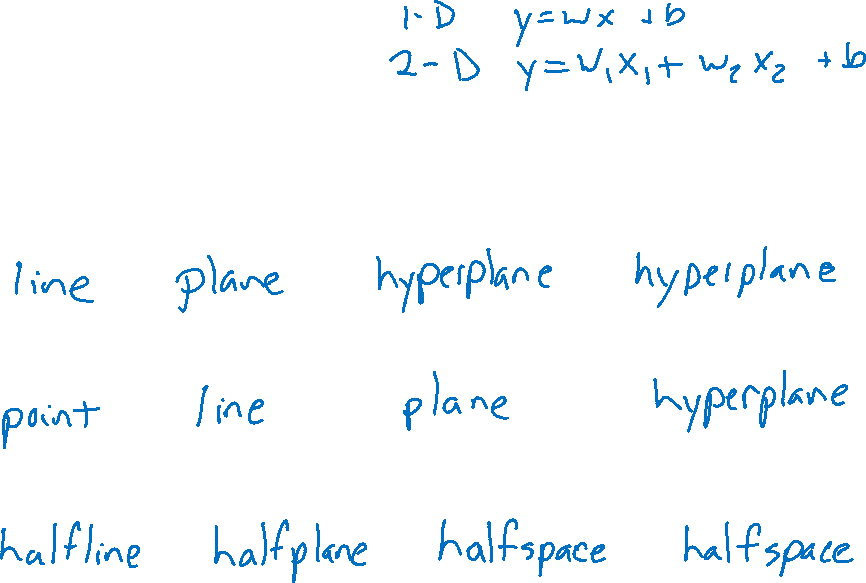 1-D y=wx +b
2-D y=w₁x₁+ w₂x₂ +b
line plane hyperplane hyperplane
point line plane hyperplane
halfline halfplane halfspace halfspace